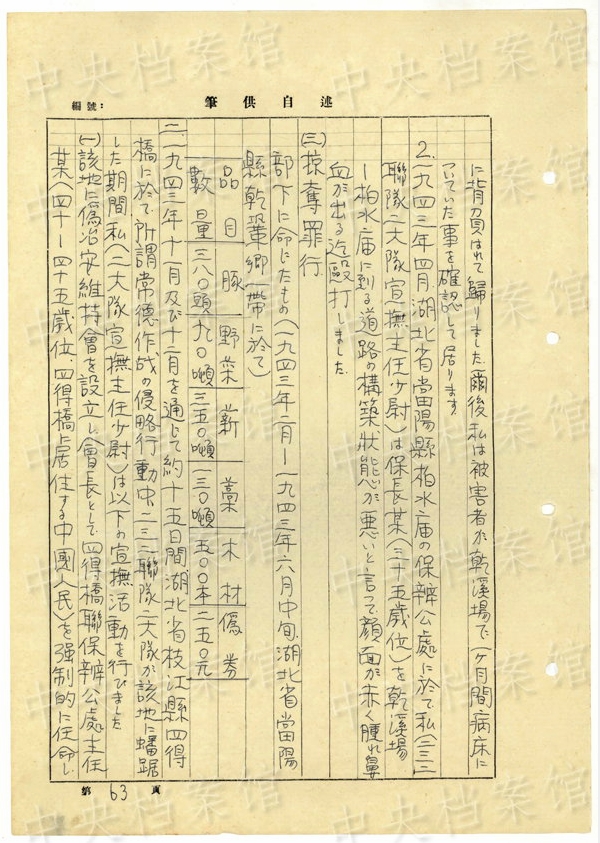 中央档案馆
編號：
筆供自述
に背負はれて歸りました爾後私は被害者が乾溪場で一ヶ月間病床に
ついていた事を確認して居ります
2.一九四三年四月湖北省當陽縣柏水庙の保辦公處に於て私(二三二
聯隊二大隊宣撫主任少尉)は保長某(三十五歲位)を乾溪場
ー柏水庙に到る道路の構築狀態が悪いと言って顔面が赤く腫れ鼻
血が出る迄毆打しました
(三)掠奪罪行
部下に命じたもの(一九四三年二月ー一九四三年六月中旬、湖北省當陽
縣乾鞏郷一帶に於て)
品目 豚 野菜 薪 藁 木材 偽券
數量 三八〇頭 九〇噸 三五〇噸 一三〇噸 五〇〇本 二五〇元
二、一九四三年十一月及び十二月を通じて約十五日間湖北省枝江縣四得
橋に於て所謂常德作战の侵略行動中、二三二聯隊二大隊が該地に蟠踞
した期間私(二大隊宣撫主任少尉)は以下の宣撫活動を行ひました
(一)該地に偽治安維持會を設立し會長として四得橋聯保辦公處主任
某(四十ー四十五歲位、四得橋に居住する中國人民)を强制的に任命し
第 63 頁